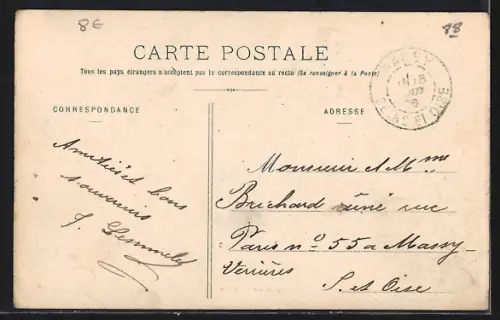 8€
88
CARTE POSTALE
Tous les pays étrangers n'acceptent pas la correspondance au recto (Se renseigner à la Poste)
CORRESPONDANCE
ADRESSE
SEINE ET OISE
Amitiés et bons
souvenirs
Monsieur et Mme
Brichard aîné rue
Paris no 55 a Massy
Verières
S. et Oise